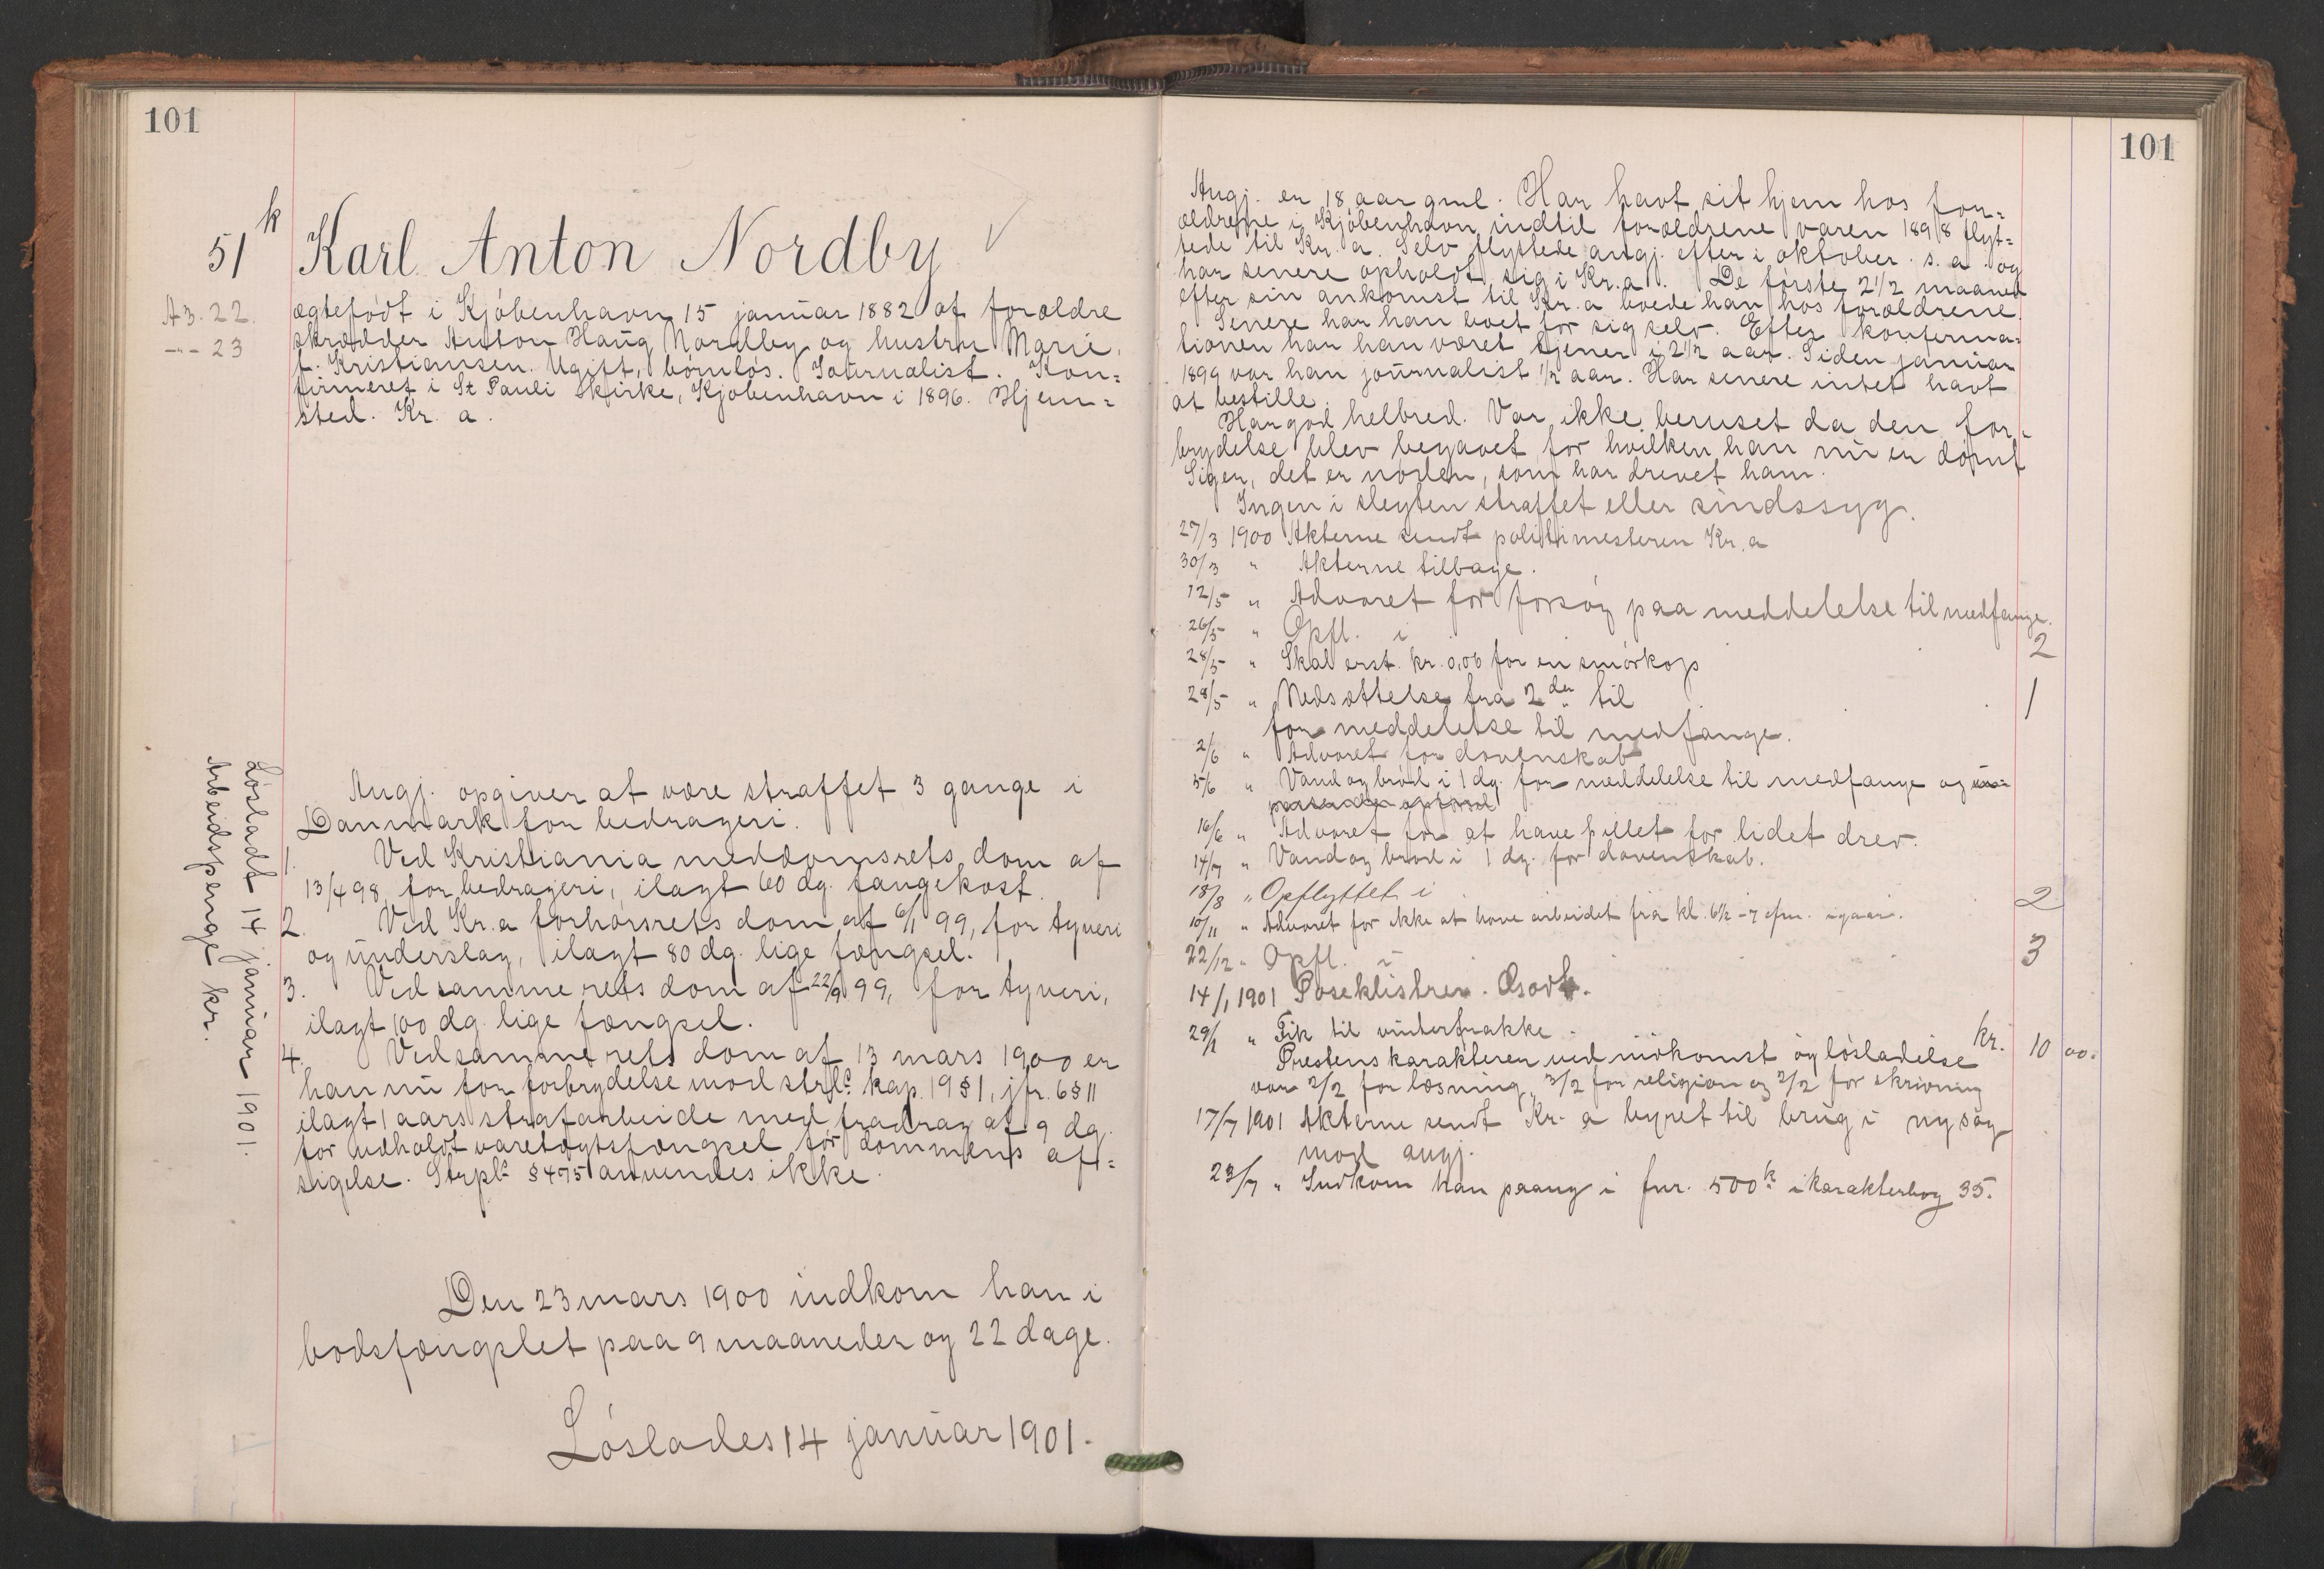 101
51 k
Karl Anton Nordby
A3. 22.
-"- 23
ægtefödt i Kjöbenhavn 15 januar 1882 af forældre
skrædder Anton Haug Nordby og hustru Marie,
f. Kristiansen. Ugift, börnlös. Journalist. Kon=
firmeret i St Pauli kirke, Kjöbenhavn i 1896. Hjem=
sted. Kr. a.
Angj. opgiver at være straffet 3 gange i
Danmark for bedrageri.
1. Ved Kristiania meddomsrets dom af
13/4 98, for bedrageri, ilagt 60 dg. fangekost.
2. Ved Kr.a forhörsrets dom af 6/1 99, for tyveri
og underslag, ilagt 80 dg. lige fængsel.
3. Ved samme rets dom af 22/9 99, for tyveri,
ilagt 100 dg. lige fængsel.
4. Ved samme rets dom af 13 mars 1900 er
han nu for forbrydelse mod strl. kap. 19 § 1, jfr. 6 § 11
ilagt 1 aars strafarbeide med fradrag af 9 dg.
for udholdt varetægtsfængsel för dommens af=
sigelse. Strpl. § 475 anvendes ikke.
Den 23 mars 1900 indkom han i
bodsfængslet paa 9 maaneder og 22 dage.
Löslades 14 januar 1901.
Lösladt 14 januar 1901.
Arbeidspenge kr.
101
Angj. er 18 aar gml. Har havt sit hjem hos for=
ældrene i Kjöbenhavn indtil forældrene vaaren 1898 flyt=
tede til Kr. a. Selv flyttede angj. efter i oktober s. a. og
har senere opholdt sig i Kr. a. De förste 2 1/2 maaned
efter sin ankomst til Kr. a boede han hos forældrene.
Senere har han boet for sig selv. Efter konfirma=
tionen har han været tjener i 2 1/2 aar. Siden januar
1899 var han journalist 1/2 aar. Har senere intet havt
at bestille.
Har god helbred. Var ikke beruset da den for=
brydelse blev begaaet, for hvilken han nu er dömt
Siger, det er nöden, som har drevet ham.
Ingen i slegten straffet eller sindssyg.
27/3 1900 Akterne sendt politimesteren Kr. a
30/3 " Akterne tilbage.
12/5 " Advaret for forsög paa meddelelse til medfange.
26/5 " Opfl. i 2
28/5 " Skal erst. kr. 0,06 for en smörkop
28/5 " Nedsættelse fra 2den til 1
for meddelelse til medfange.
2/6 " Advaret for dovenskab
5/6 " Vand og bröd i 1 dg. for meddelelse til medfange og
16/6 " Advaret for at have pillet for lidet drev.
14/7 " Vand og bröd i 1 dg. for dovenskab.
18/8 " Opflyttet i 2
10/11 " Advaret for ikke at have arbeidet fra kl. 6 1/2 - 7 efm. igaar.
22/12 " Opfl. i 3
14/1 1901 Poseklistrer. Godt.
29/1 " Fik til vinterfrakke kr. 10 00.
Prestens karakterer ved indkomst og lösladelse
var 2/2 for læsning, 3/2 for religion og 2/2 for skrivning
17/7 1901 Akterne sendt Kr. a byret til brug i ny sag
mod angj.
23/7 " Indkom han paany i fnr. 500 k i karakterbog 35.